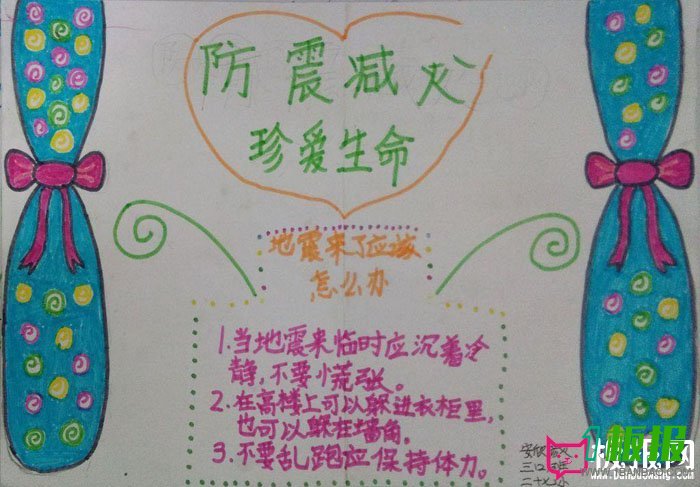 防震减火
珍爱生命
地震来了应该
怎么办
1.当地震来临时应沉着冷
静,不要慌张。
2.在高楼上可以躲进衣柜里,
也可以躲在墙角。
3.不要乱跑应保持体力。
板报